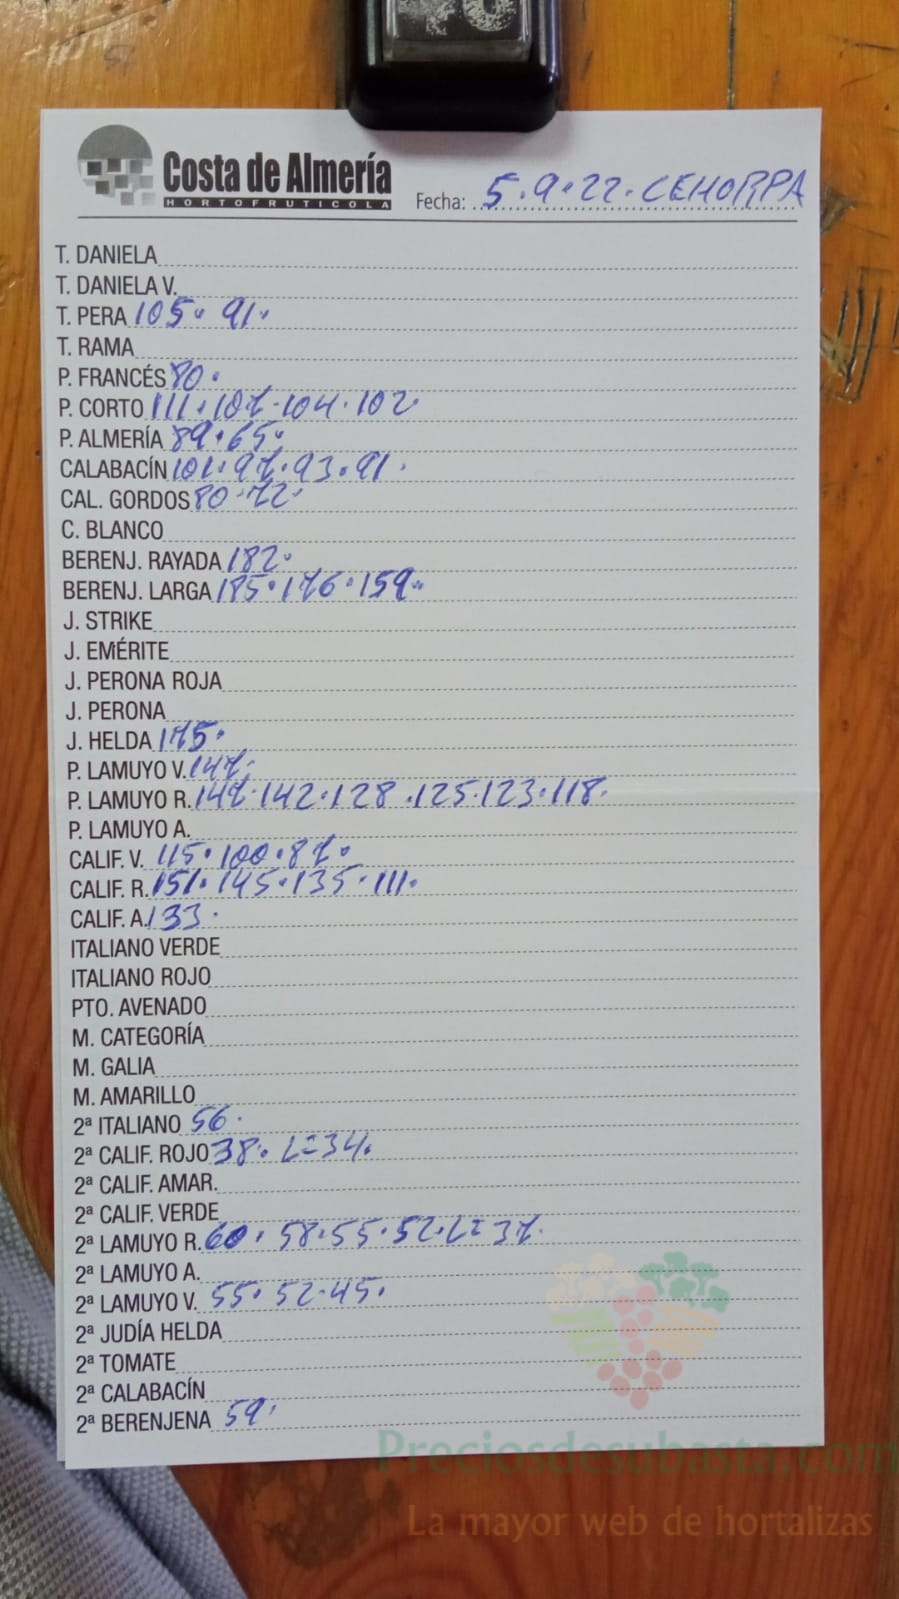 Costa de Almería
HORTOFRUTICOLA
Fecha: 5.9.22. CEHORPA
T. DANIELA
T. DANIELA V.
T. PERA 105. 91.
T. RAMA
P. FRANCÉS 80.
P. CORTO 111.107.104.102.
P. ALMERÍA 89.65.
CALABACÍN 101.97.93.91.
CAL. GORDOS 80.72.
C. BLANCO
BERENJ. RAYADA 182.
BERENJ. LARGA 185.176.159.
J. STRIKE
J. EMÉRITE
J. PERONA ROJA
J. PERONA
J. HELDA 175.
P. LAMUYO V. 147.
P. LAMUYO R. 147.142.128.125.123.118.
P. LAMUYO A.
CALIF. V. 115.100.87.
CALIF. R. 151.145.135.111.
CALIF. A. 133.
ITALIANO VERDE
ITALIANO ROJO
PTO. AVENADO
M. CATEGORÍA
M. GALIA
M. AMARILLO
2ª ITALIANO 56.
2ª CALIF. ROJO 38. L=34.
2ª CALIF. AMAR.
2ª CALIF. VERDE
2ª LAMUYO R. 60.58.55.52.L=37.
2ª LAMUYO A.
2ª LAMUYO V. 55.52.45.
2ª JUDÍA HELDA
2ª TOMATE
2ª CALABACÍN
2ª BERENJENA 59.
Preciosdesubasta.com
La mayor web de hortalizas